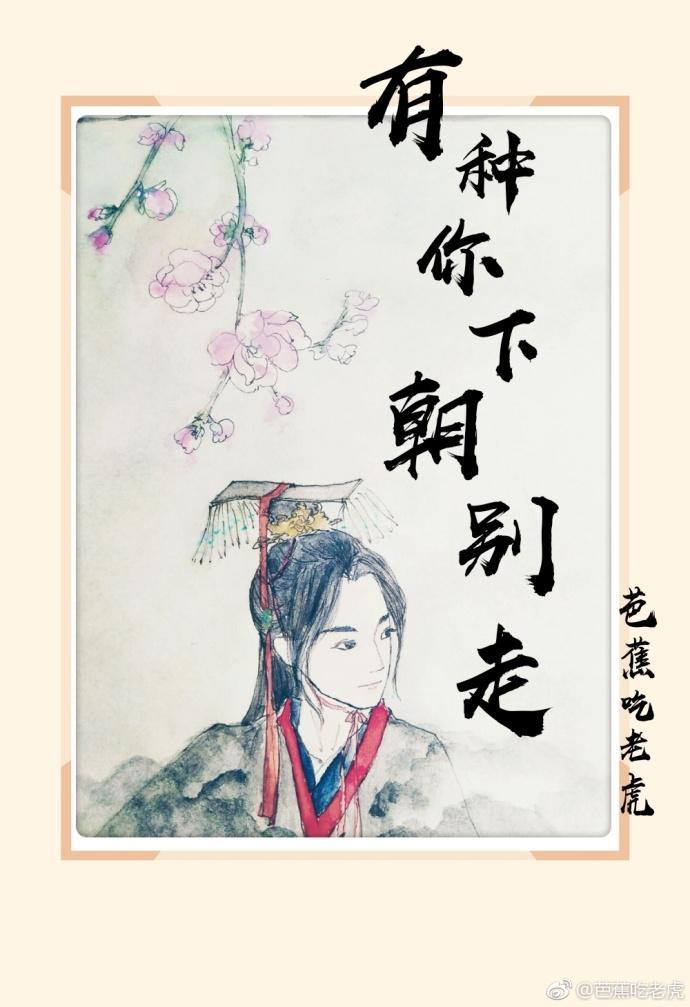 有种你下朝别走
芭蕉吃老虎
@芭蕉吃老虎